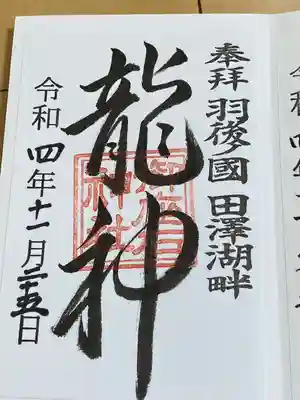 奉拝 羽後國 田澤湖畔
龍神
御座石神社
令和四年十一月二十五日